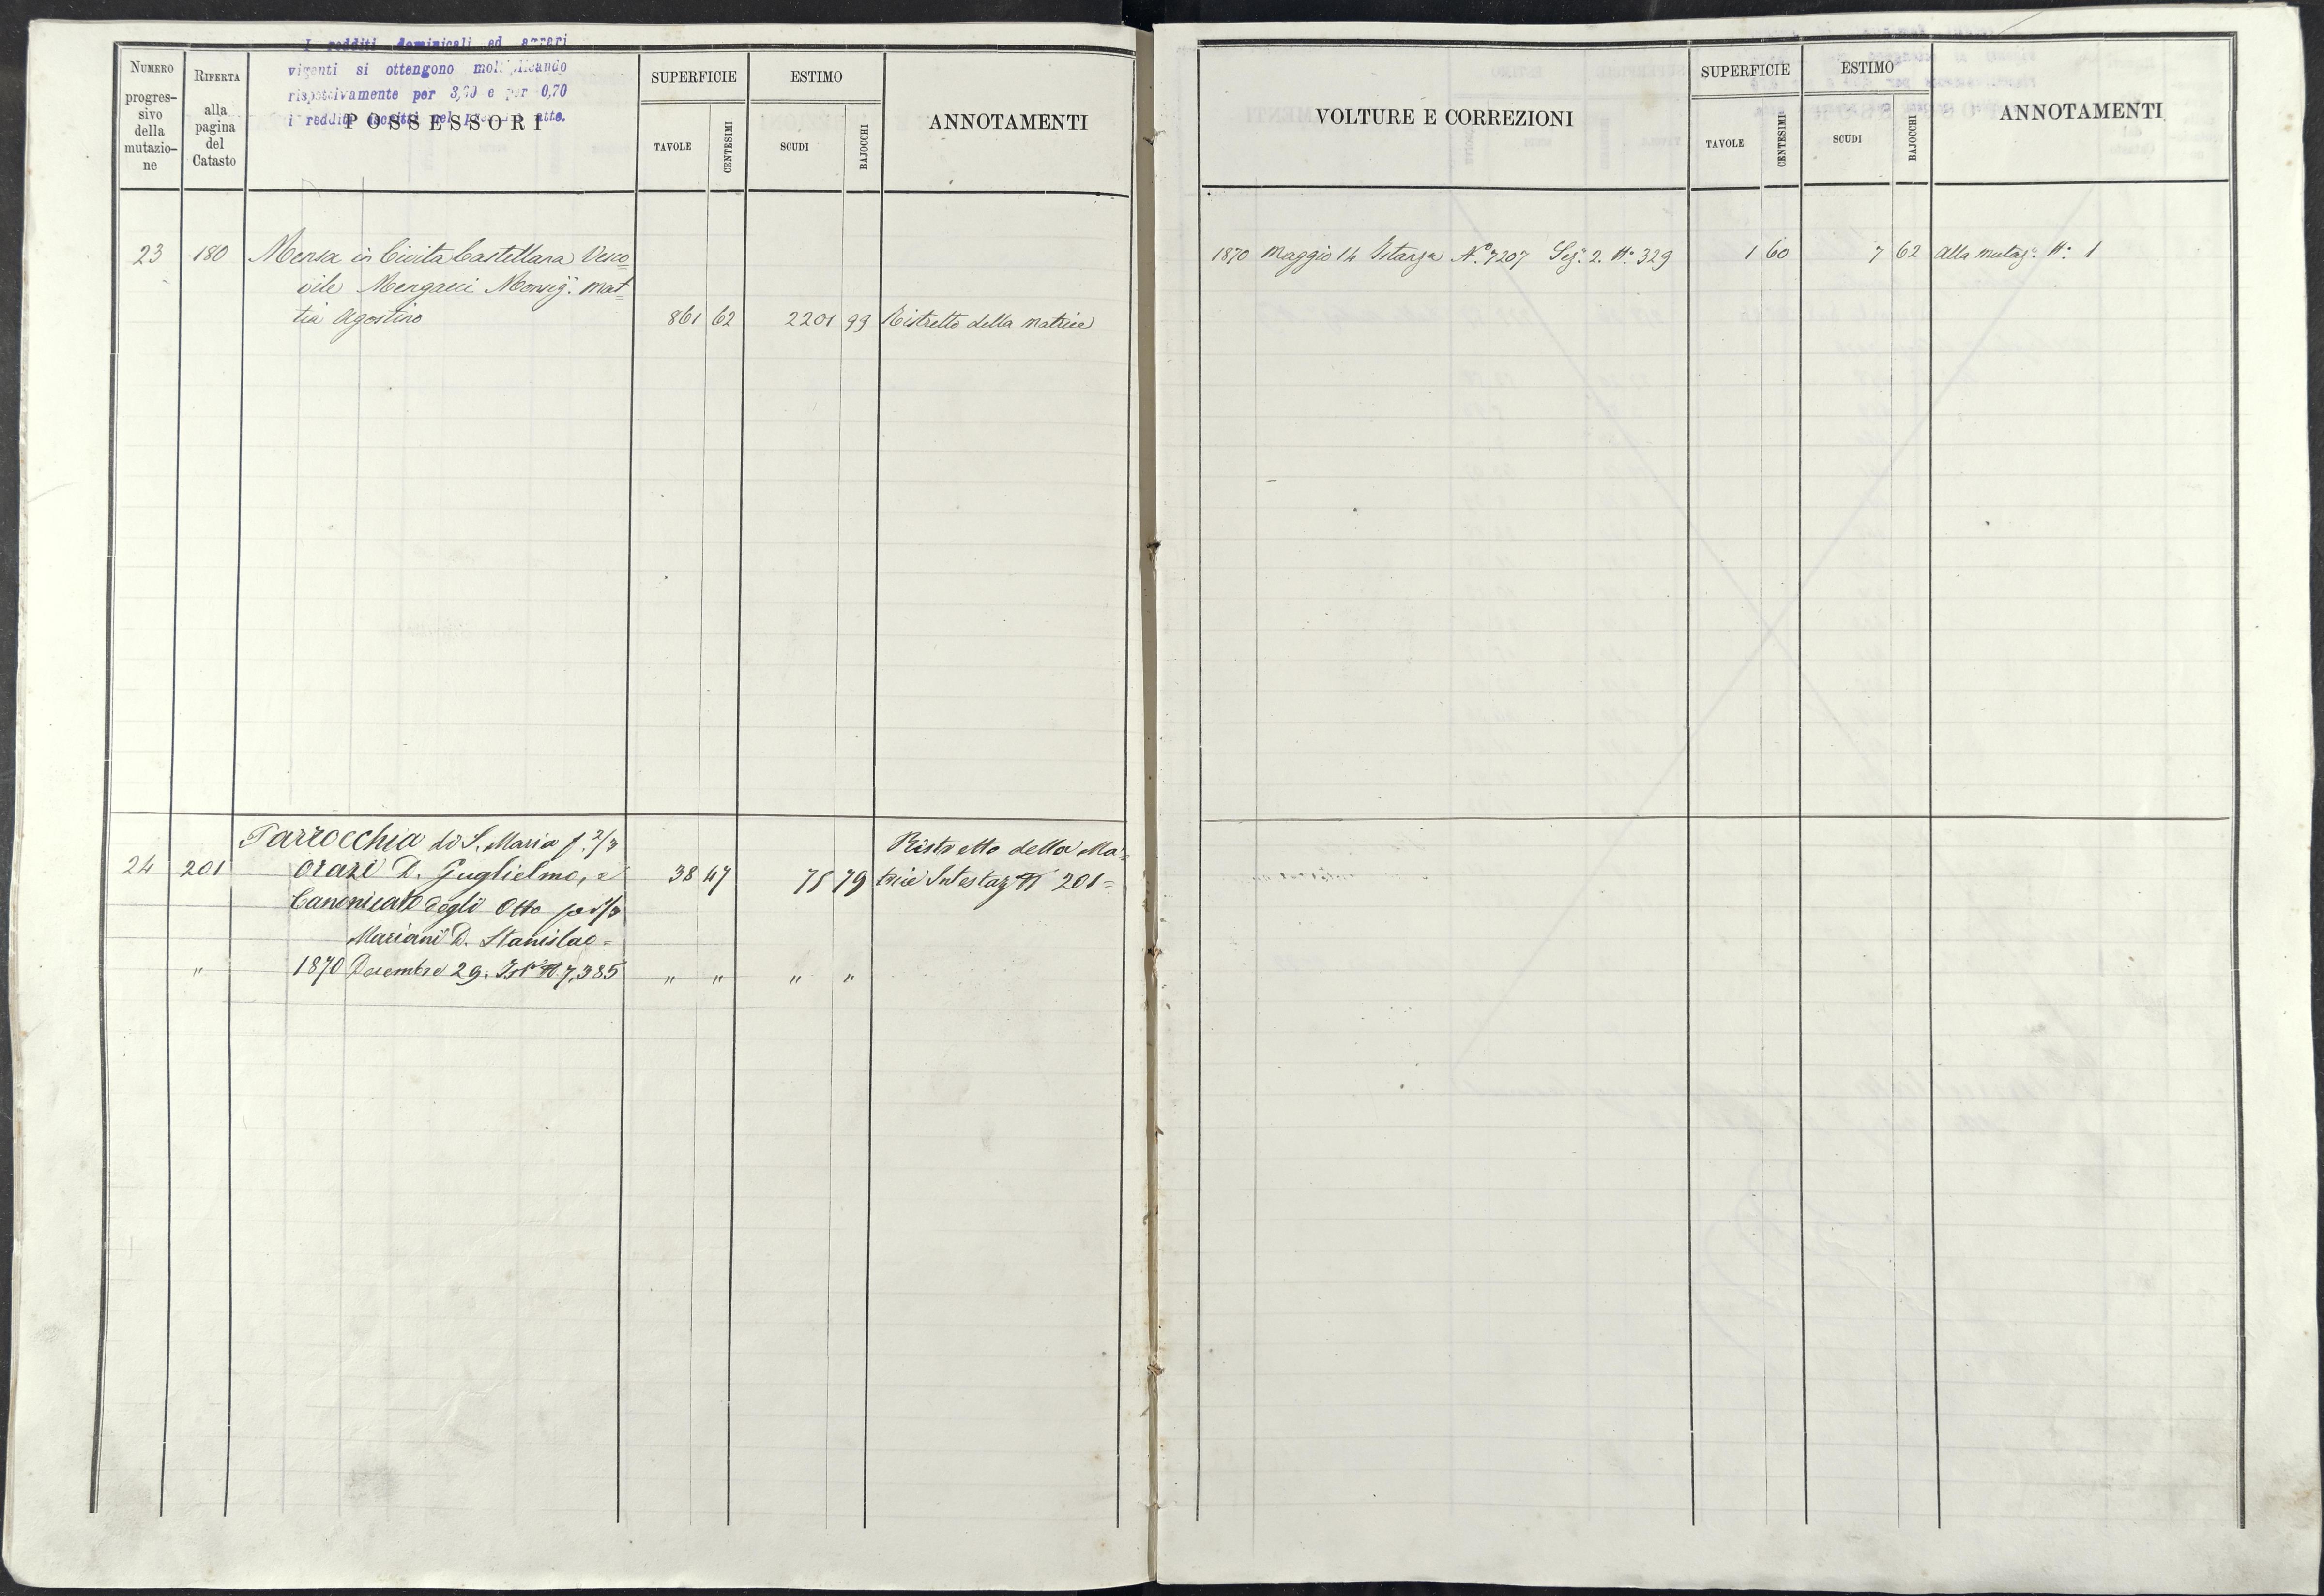 I redditi dominicali ed agrari
vigenti si ottengono moltiplicando
rispettivamente per 3,70 e per 0,70
i redditi iscritti nel atto.
NUMERO progres-
sivo
della
mutazio-
ne
RIFERTA alla
pagina
del
Catasto
POSSESSORI
SUPERFICIE
TAVOLE CENTESIMI
ESTIMO
SCUDI BAJOCCHI
ANNOTAMENTI
23 180 Mensa in Civita Castellana Vesco
vile Mengacci Monsig.r Mat
tia Agostino 861 62 2201 99 Ristretto della Matrice
Parrocchia di S. Maria p. 2/3
24 201 Orazi D. Guglielmo, e 38 47 75 79 Ristretto della Ma=
trice Intestaz N 201=
Canonicato degli Otto per 1/3
Mariani D. Stanislao=
" 1870 Decembre 29. Ist. N 7,385 " " " "
VOLTURE E CORREZIONI
SUPERFICIE
TAVOLE CENTESIMI
ESTIMO
SCUDI BAJOCCHI
ANNOTAMENTI
1870 Maggio 14 Istanza N.o 7207 Sez. 2. N.o 329 1 60 7 62 Alla mutaz.e N.o 1